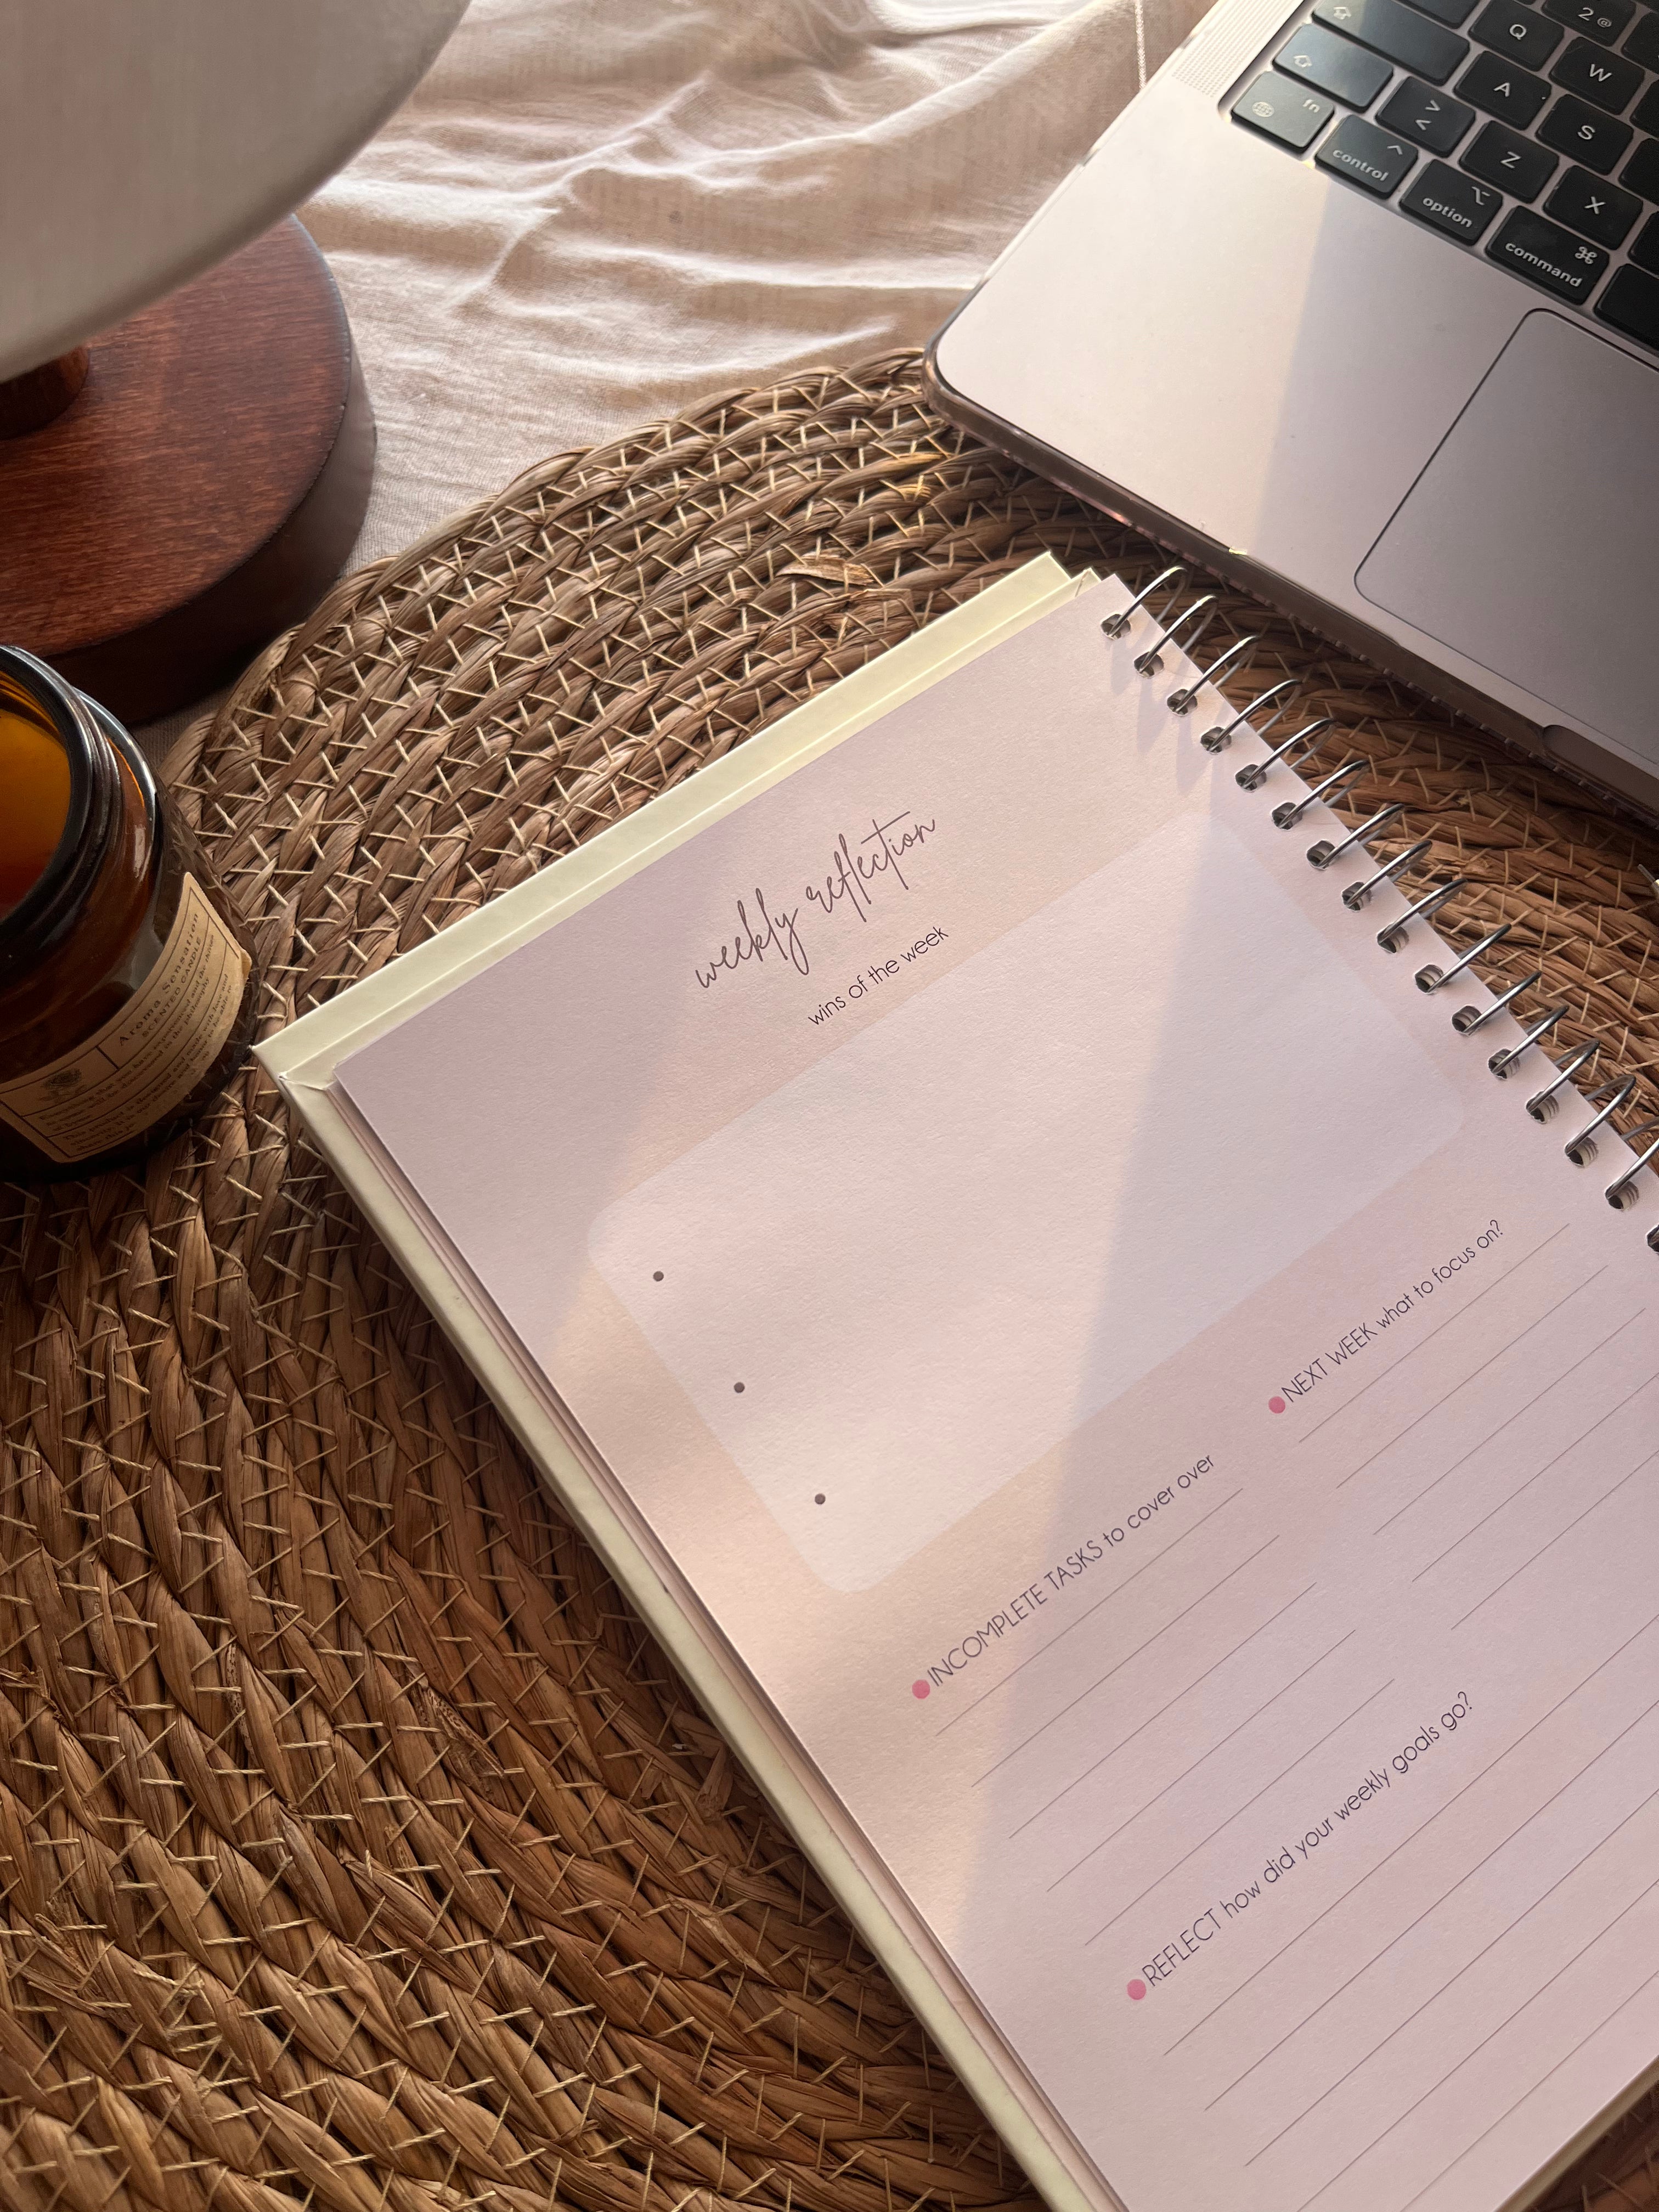 weekly reflection
wins of the week
INCOMPLETE TASKS to cover over
NEXT WEEK what to focus on?
REFLECT how did your weekly goals go?
2 @
Q
W
A
S
fn
> <
Z
X
control
option
command
Aroma Sensation
SCENTED CANDLE